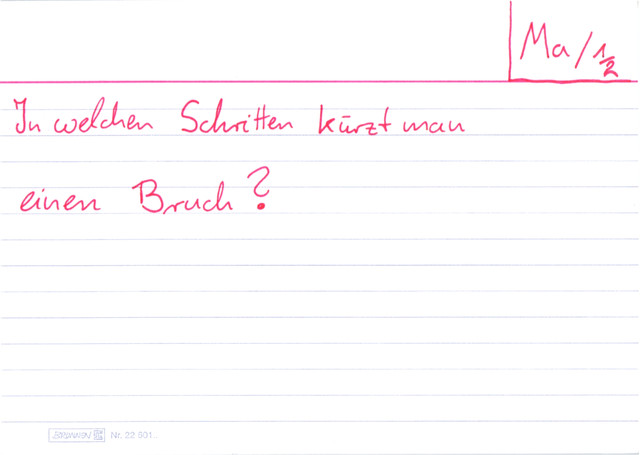 Ma/½
In welchen Schritten kürzt man
einen Bruch?
BRUNNEN Nr. 22 601